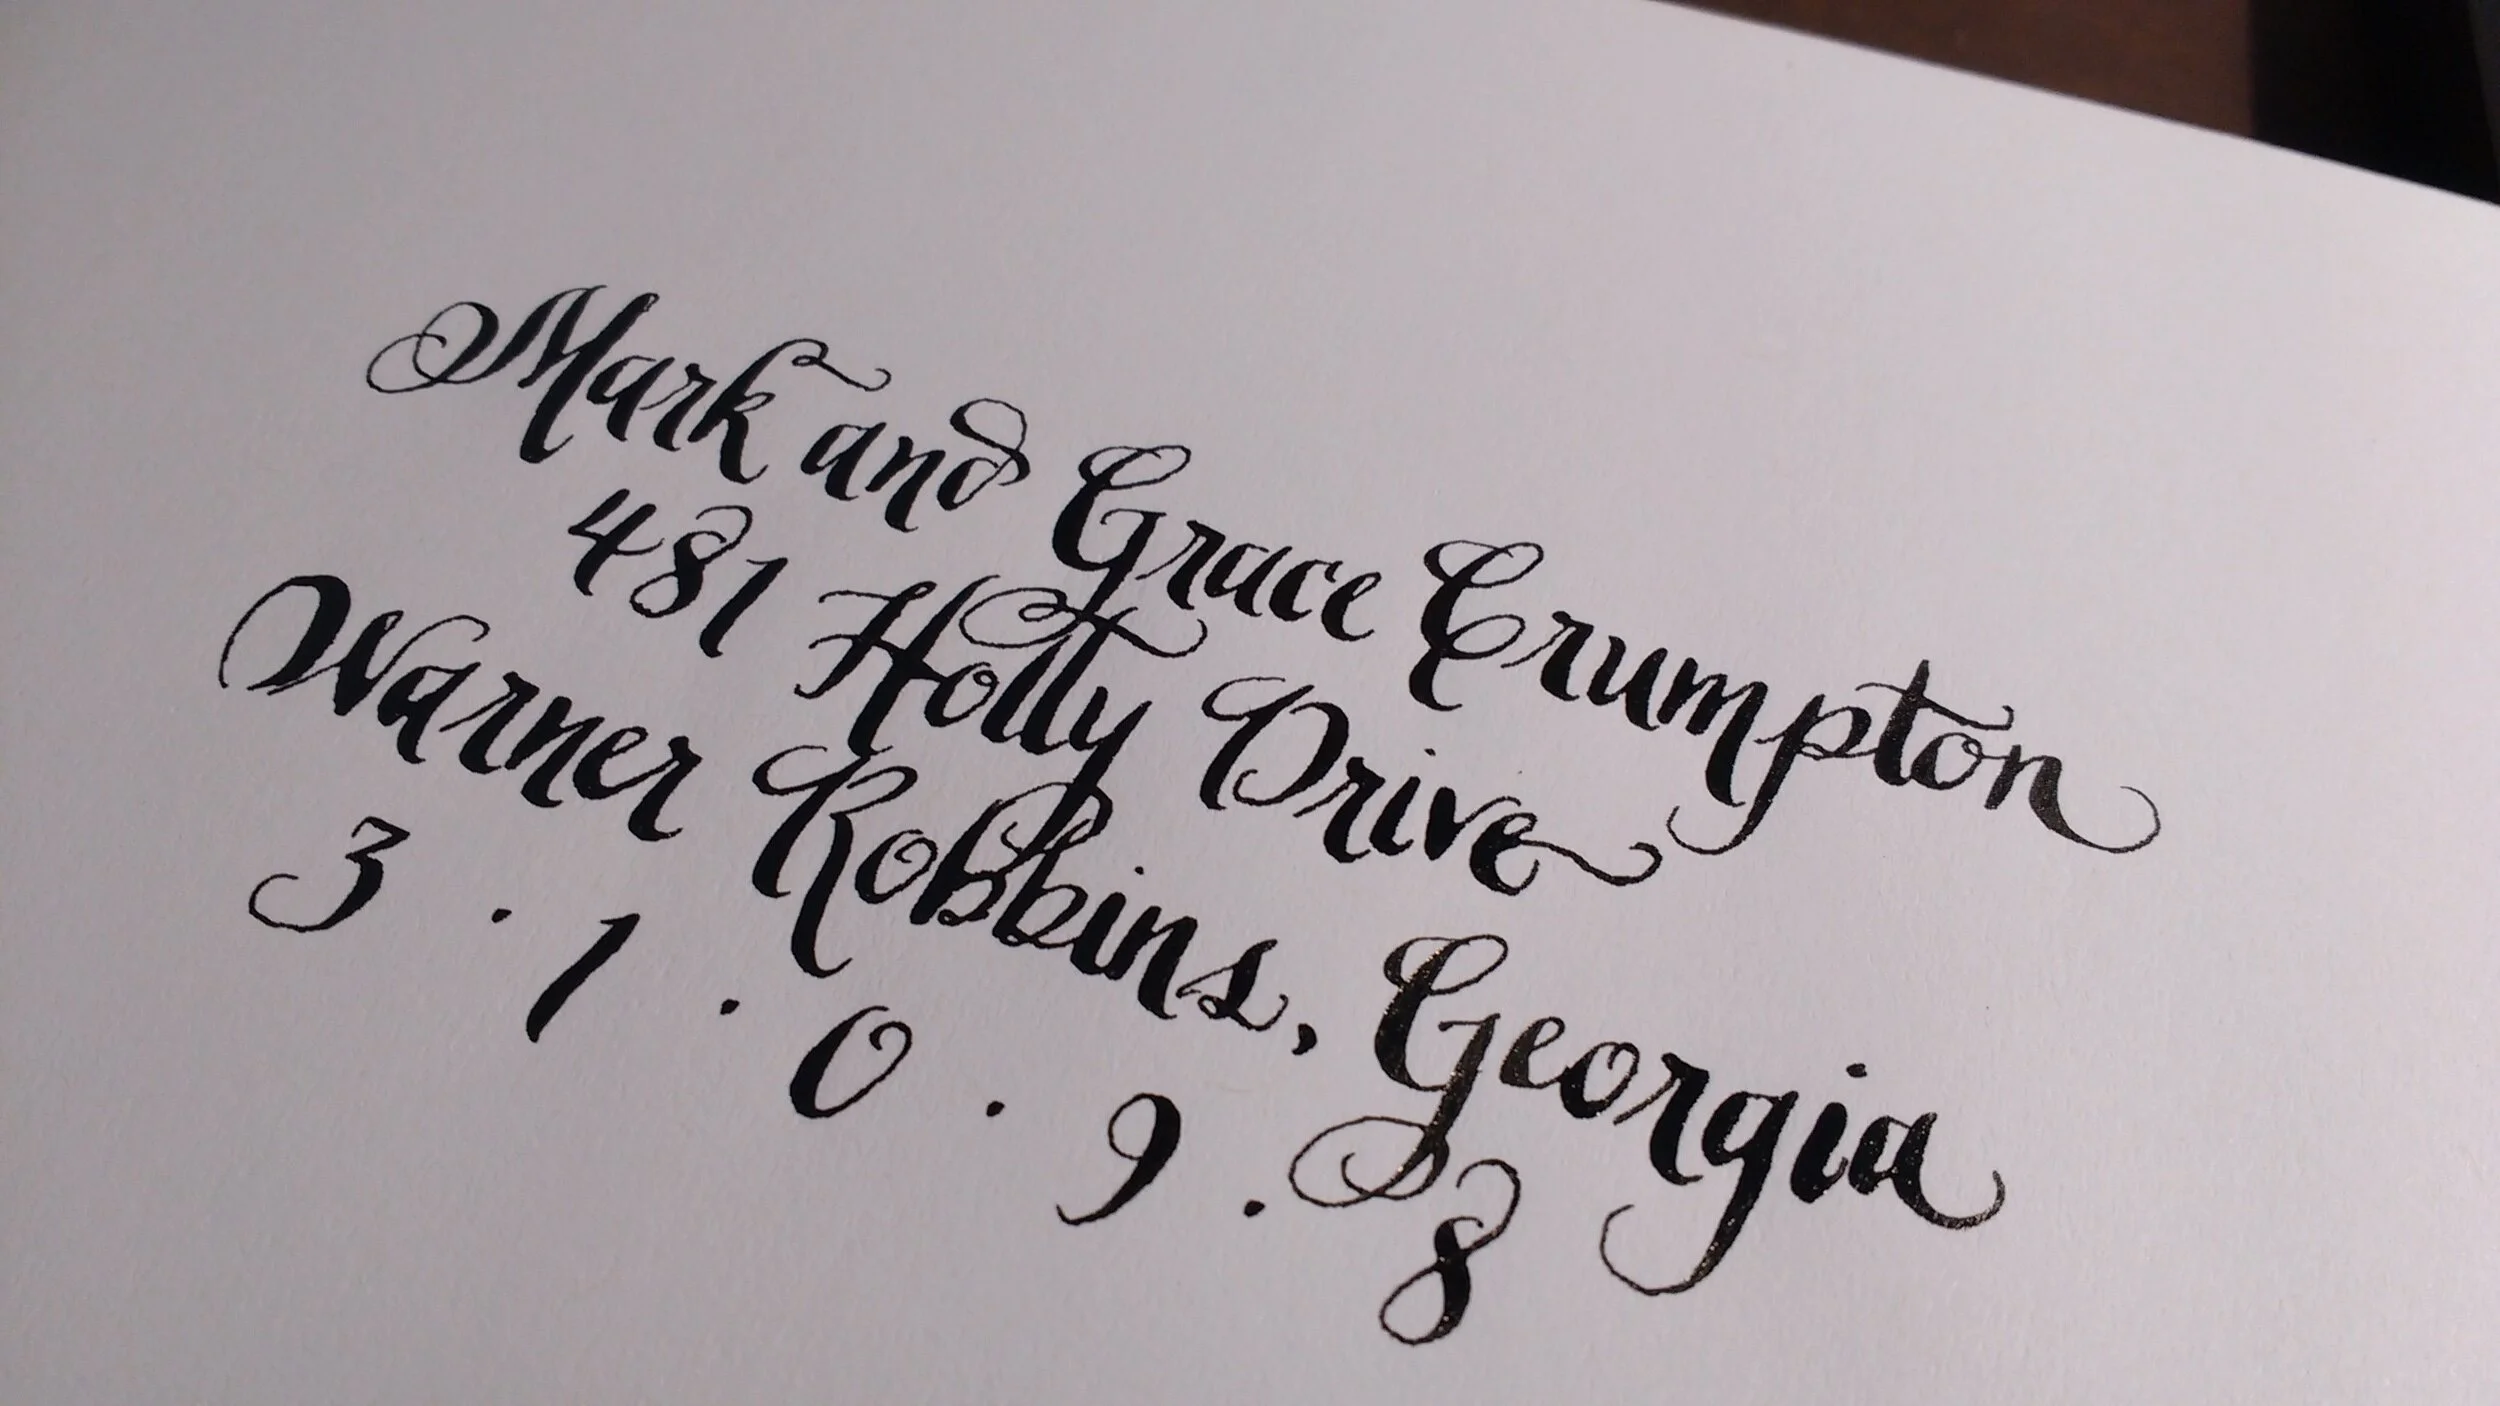 Mark and Grace Crumpton
481 Holly Drive
Warner Robbins, Georgia
3 . 1 . 0 . 9 . 8